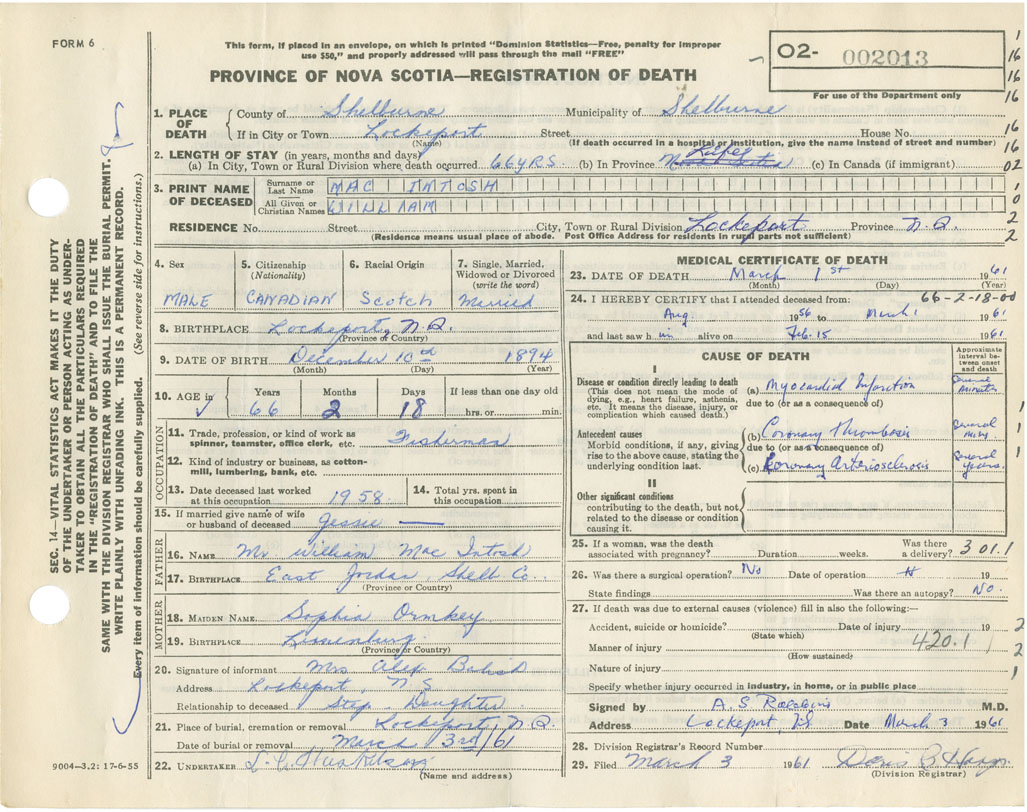 FORM 6
This form, if placed in an envelope, on which is printed "Dominion Statistics—Free, penalty for improper
use $50," and properly addressed will pass through the mail "FREE"
PROVINCE OF NOVA SCOTIA—REGISTRATION OF DEATH
02- 002013
For use of the Department only
1. PLACE OF DEATH
County of Shelburne Municipality of Shelburne
If in City or Town Lockeport Street House No.
(Name) (If death occurred in a hospital or institution, give the name instead of street and number)
2. LENGTH OF STAY (in years, months and days)
(a) In City, Town or Rural Division where death occurred 66 YRS (b) In Province (c) In Canada (if immigrant)
3. PRINT NAME OF DECEASED
Surname or Last Name MAC INTOSH
All Given or Christian Names WILLIAM
RESIDENCE No. Street City, Town or Rural Division Lockeport Province N.S.
(Residence means usual place of abode. Post Office Address for residents in rural parts not sufficient)
4. Sex MALE
5. Citizenship (Nationality) CANADIAN
6. Racial Origin Scotch
7. Single, Married, Widowed or Divorced (write the word) Married
8. BIRTHPLACE Lockeport, N.S.
(Province or Country)
9. DATE OF BIRTH December 10th 1894
(Month) (Day) (Year)
10. AGE in Years 66 Months 2 Days 18 If less than one day old hrs. or min.
OCCUPATION
11. Trade, profession, or kind of work as spinner, teamster, office clerk, etc. Fisherman
12. Kind of industry or business, as cotton-mill, lumbering, bank, etc.
13. Date deceased last worked at this occupation 1958
14. Total yrs. spent in this occupation
15. If married give name of wife or husband of deceased Jessie
FATHER
16. NAME Mr William Mac Intosh
17. BIRTHPLACE East Jordan, Shelb Co.
(Province or Country)
MOTHER
18. MAIDEN NAME Sophia
19. BIRTHPLACE Lunenburg
(Province or Country)
20. Signature of informant Mrs
Address Lockeport, N S
Relationship to deceased Step Daughter
21. Place of burial, cremation or removal Lockeport, N.S.
Date of burial or removal March 3rd/61
22. UNDERTAKER
(Name and address)
9004—3.2: 17-6-55
MEDICAL CERTIFICATE OF DEATH
23. DATE OF DEATH March 1st 1961
(Month) (Day) (Year)
24. I HEREBY CERTIFY that I attended deceased from: 66-2-18-00
Aug 1956 to March 1 1961
and last saw h im alive on Feb. 15 1961
CAUSE OF DEATH
Approximate interval between onset and death
I
Disease or condition directly leading to death
(This does not mean the mode of dying, e.g., heart failure, asthenia, etc. It means the disease, injury, or complication which caused death.)
(a) Myocardial Infarction Several minutes
due to (or as a consequence of)
Antecedent causes
Morbid conditions, if any, giving rise to the above cause, stating the underlying condition last.
(b) Coronary Thrombosis Several
due to (or as a consequence of)
(c) Coronary Arteriosclerosis Several years.
II
Other significant conditions
contributing to the death, but not related to the disease or condition causing it.
25. If a woman, was the death associated with pregnancy? Duration weeks. Was there a delivery? 301.1
26. Was there a surgical operation? No Date of operation 19
State findings Was there an autopsy? No.
27. If death was due to external causes (violence) fill in also the following:—
Accident, suicide or homicide? Date of injury 19
(State which)
Manner of injury 420.1
(How sustained)
Nature of injury
Specify whether injury occurred in industry, in home, or in public place
Signed by A. S M.D.
Address Lockeport, NS Date March 3 1961
28. Division Registrar's Record Number
29. Filed March 3 1961 Doris
(Division Registrar)
SEC. 14—VITAL STATISTICS ACT MAKES IT THE DUTY
OF THE UNDERTAKER OR PERSON ACTING AS UNDER-
TAKER TO OBTAIN ALL THE PARTICULARS REQUIRED
IN THE "REGISTRATION OF DEATH" AND TO FILE THE
SAME WITH THE DIVISION REGISTRAR WHO SHALL ISSUE THE BURIAL PERMIT.
WRITE PLAINLY WITH UNFADING INK. THIS IS A PERMANENT RECORD.
Every item of information should be carefully supplied. (See reverse side for instructions.)
1
16
16
16
16
16
02
1
0
2
2
1
1
1
2
2
1